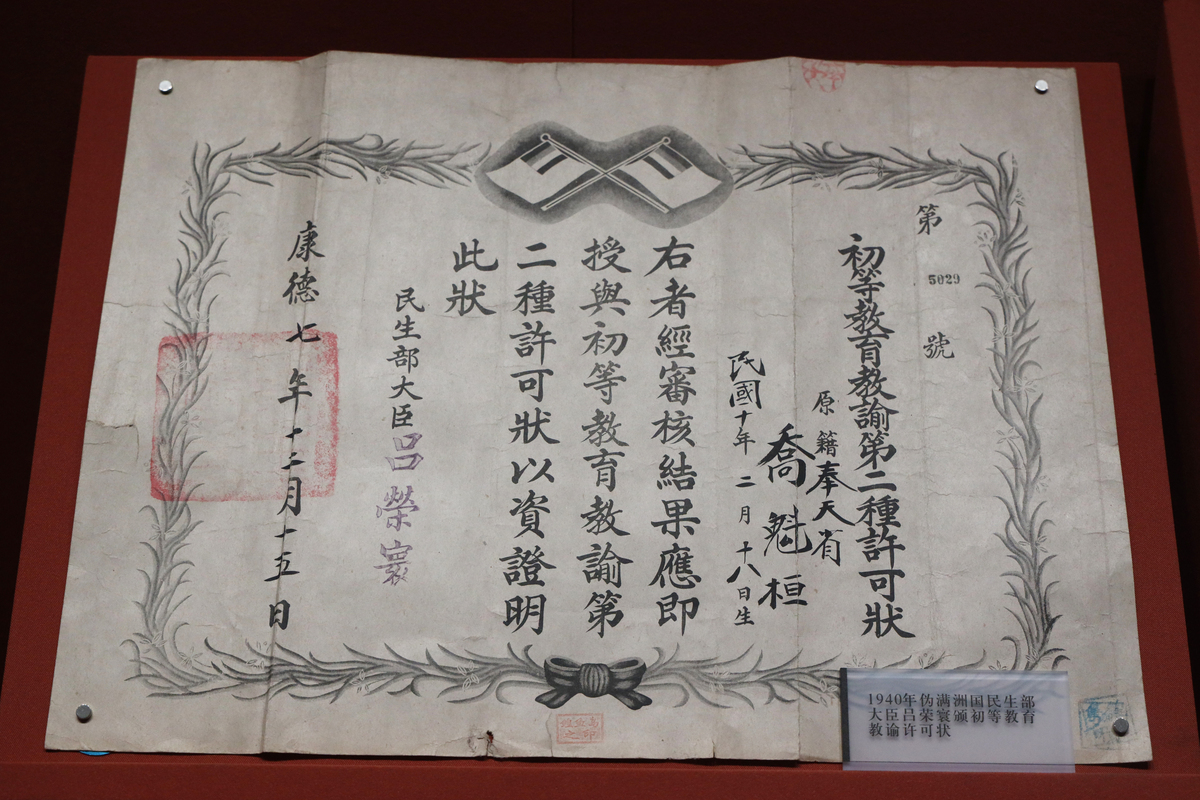 第 5029 號
初等教育教諭第二種許可狀
原籍奉天省
喬魁桓
民國十年二月十八日生
右者經審核結果應即
授與初等教育教諭第
二種許可狀以資證明
此狀
民生部大臣呂榮寰
康德七年十二月十五日
1940年伪满洲国民生部
大臣吕荣寰颁初等教育
教谕许可状